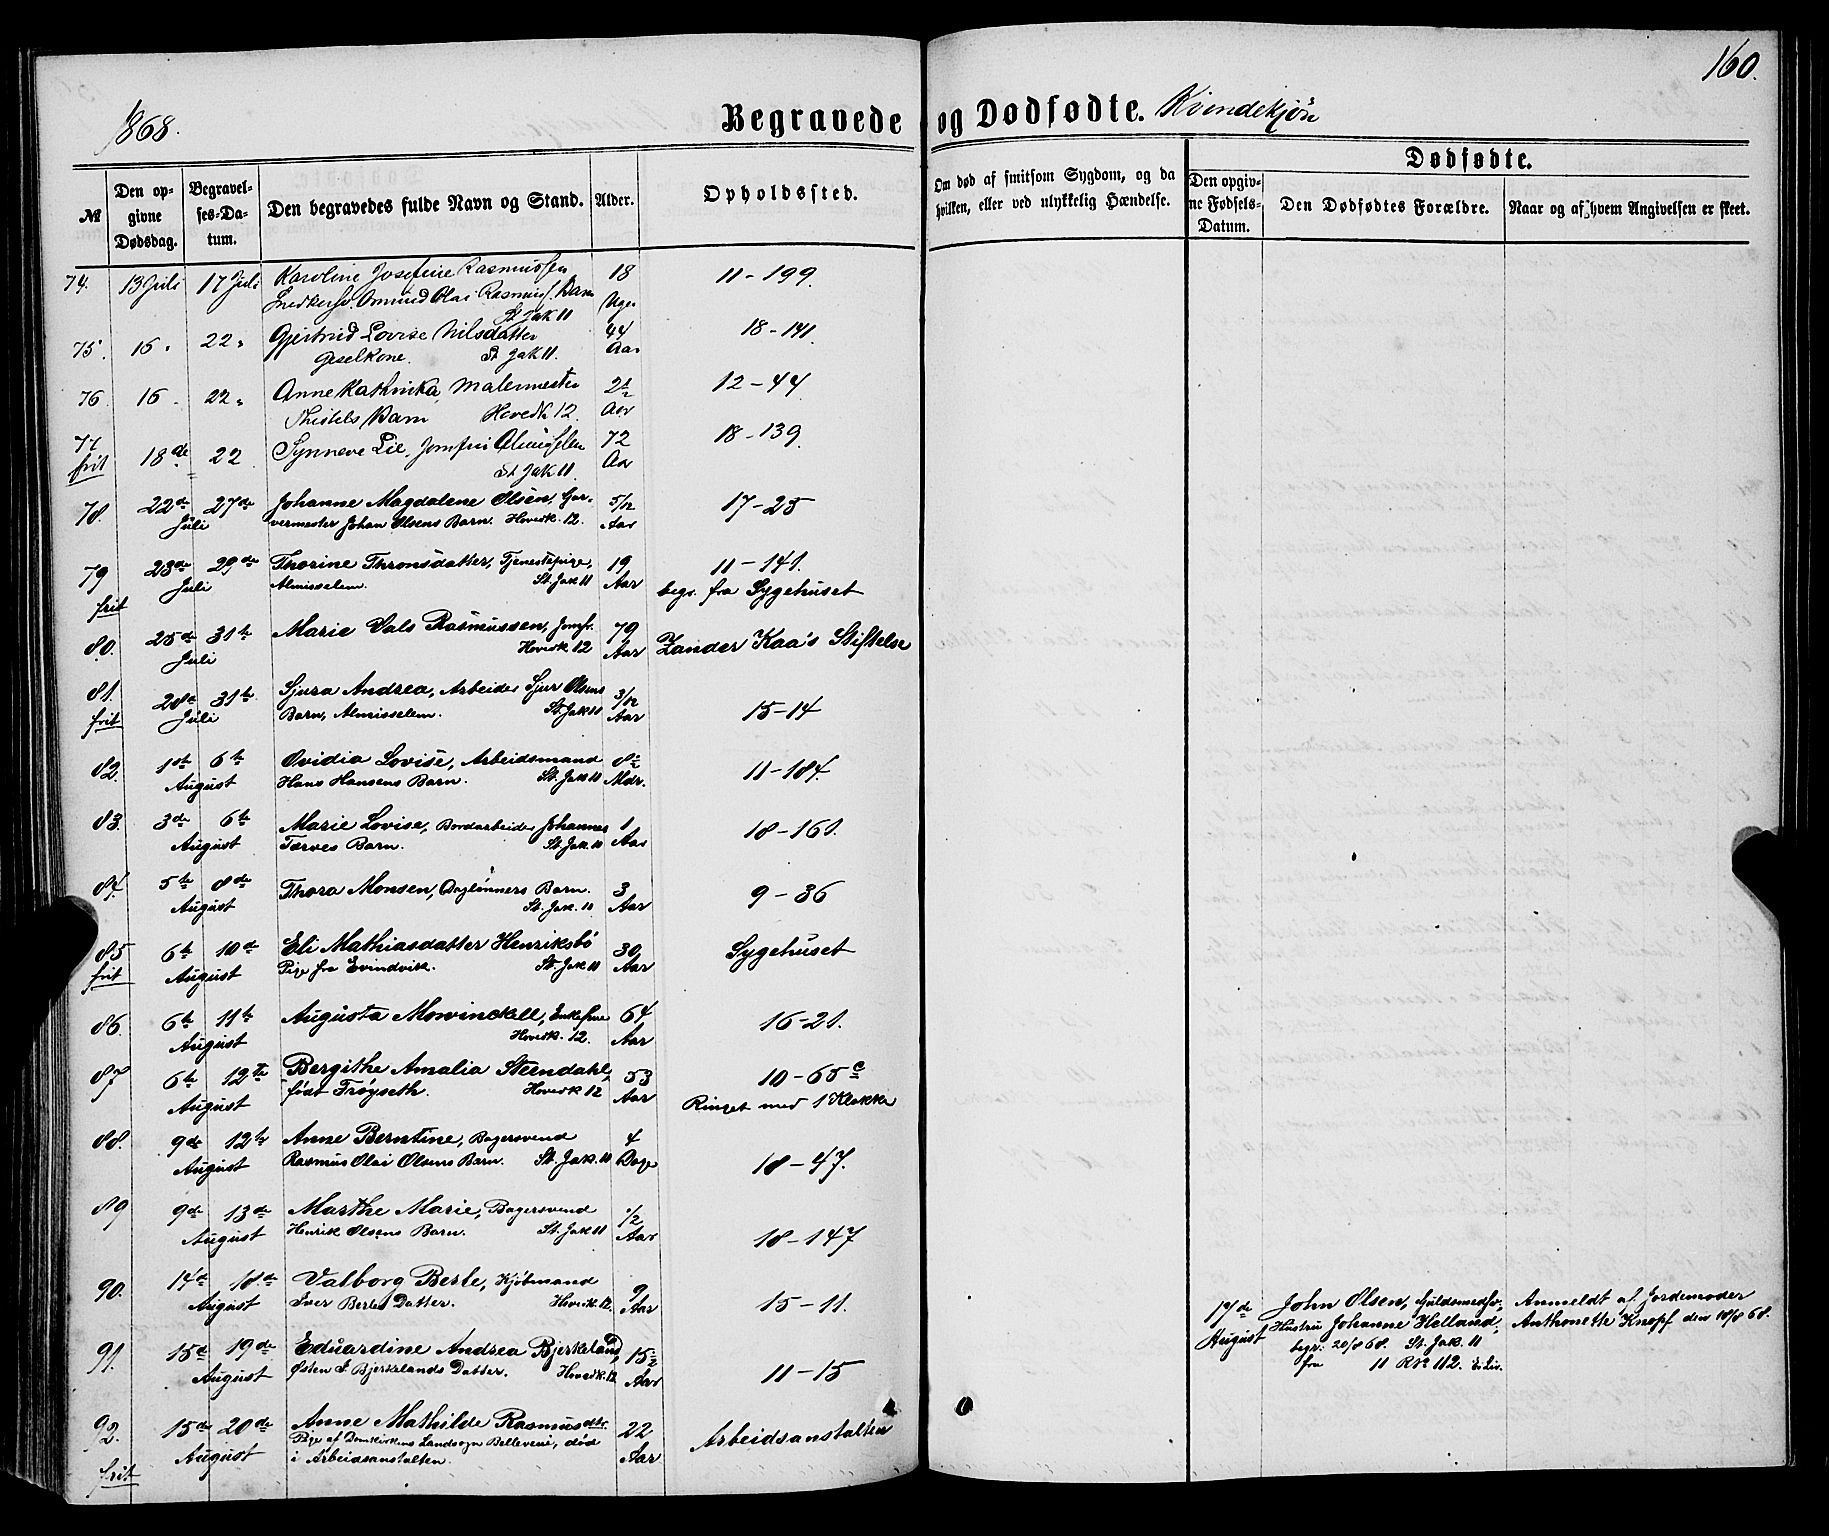 160.
1868.
Begravede og Dødfødte. Kvindekjøn
№
Den opgivne Dødsdag.
Begravelses-Datum.
Den begravedes fulde Navn og Stand.
Alder.
Opholdssted.
Om død af smitsom Sygdom, og da hvilken, eller ved ulykkelig Hændelse.
Dødfødte.
Den opgivne Fødsels-Datum.
Den Dødfødtes Forældre.
Naar og af hvem Angivelsen er skeet.
74. 13 Juli 17 Juli Karoline Josefine Rasmussen 18 11-199.
Snedkers. Omund Olai Rasmuss. Barn Uger
St Jak 11
75. 16 " 22 " Gjertrud Lovise Nilsdatter 44 18-141.
Geselkone. St Jak 11. Aar
76. 16 " 22 " Anne Kathrika, Malermester 2½ 12-44
Thistels Barn Hovedk 12. Aar
77 18de 22 Synneve Lie, Jomfru Almisselem 72 18-139
frit St Jak 11. Aar
78. 22de 27de Johanne Magdalene Olsen, Gar- 5/12 17-25
Juli vermester Johan Olsens Barn. Hovedk. 12. Aar
79 23de 29de Thorine Thronsdatter, Tjenestepige, 19 11-141.
frit Juli Almisselem. St. Jak 11 Aar begr. fra Sygehuset
80. 25de 31te Marie Vals Rasmussen, Jomfr. 79 Zander Kaa's Stiftelse
Juli Hovedk 12 Aar
81. 28d 31te Sjura Andrea, Arbeider Sjur Olsens 3/12
frit Juli Barn, Almisselem. St. Jak 11 Aar 15-14
82. 1ste 6te Ovidia Lovise, Arbeidsmand 8½ 11-184.
August Hans Hansens Barn. St. Jak 11 Mdr.
83. 3de 6te Marie Lovise, Bordarbeider Johannes 1 18-161.
August Tarves Barn. St. Jak 11 Aar
84. 5te 8de Thora Monsen, Daglønners Barn. 3 9-36
August St. Jak. 11 Aar
85 6te 10de Eli Mathiasdatter Henriksbö 30 Sygehuset
frit August Pige fra Evindvik. St. Jak 11 Aar
86. 6te 11te Augusta Mowinckell, Enkefrue 64 16-21.
August Hovedk. 12. Aar
87 6te 12te Bergithe Amalia Steendahl, 53 10-65c
August født Trøyseth. Hovedk 12 Aar Ringet med 1 Klokke
88. 9de 12te Anne Berntine, Bagersvend 4
August Rasmus Olai Olsens Barn. St. Jak. 11 Dage 18-47.
89 9de 13de Marthe Marie, Bagersvend ½
August Henrik Olsens Barn. St. Jak 11 Aar 18-147
90. 14d 18de Valborg Berle, Kjöbmand 9
August Iver Berles Datter. Hovedk. 12. Aar 15-11.
17de John Olsen, Guldsmedsv. Anmeldt af Jordemoder
August Hustru Johanne Helland, Anthonette Knopf den 18/8 68.
begr. 20/8 68. St. Jak. 11
fra 11 R No 112.
91. 15d 19de Eduardine Andrea Bjerkeland, 15½
August Østen I Bjerkelands Datter. Hovedk. 12 Aar 11-15
92. 15de 20de Anne Mathilde Rasmusdtr. 22 Arbeidsanstalten
August Pige af Domkirkens Landsogn Belleveue, död Aar
frit i Arbeidsanstalten.